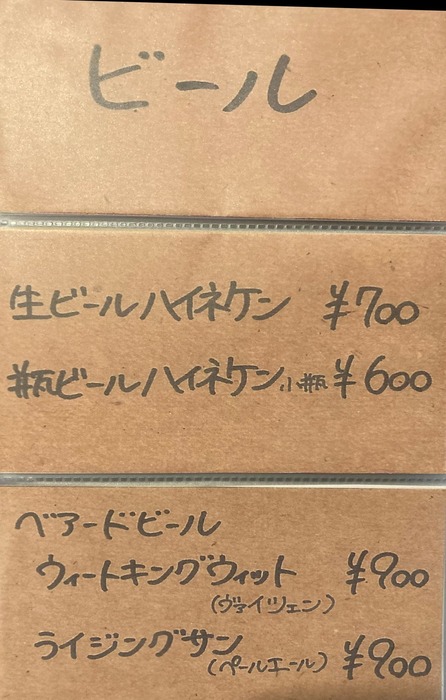 ビール
生ビールハイネケン ¥700
瓶ビールハイネケン小瓶 ¥600
ベアードビール
ウィートキングウィット ¥900
(ヴァイツェン)
ライジングサン
(ペールエール) ¥900